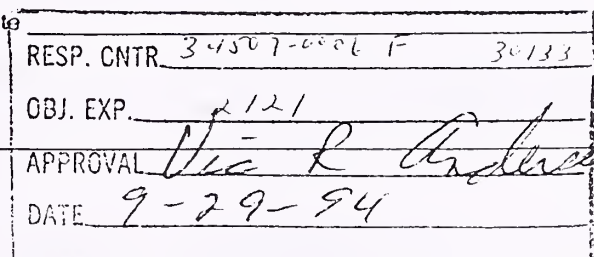 te
RESP. CNTR. 34507-0006 F 30133
OBJ. EXP. 2121
APPROVAL Vic R
DATE 9-29-94